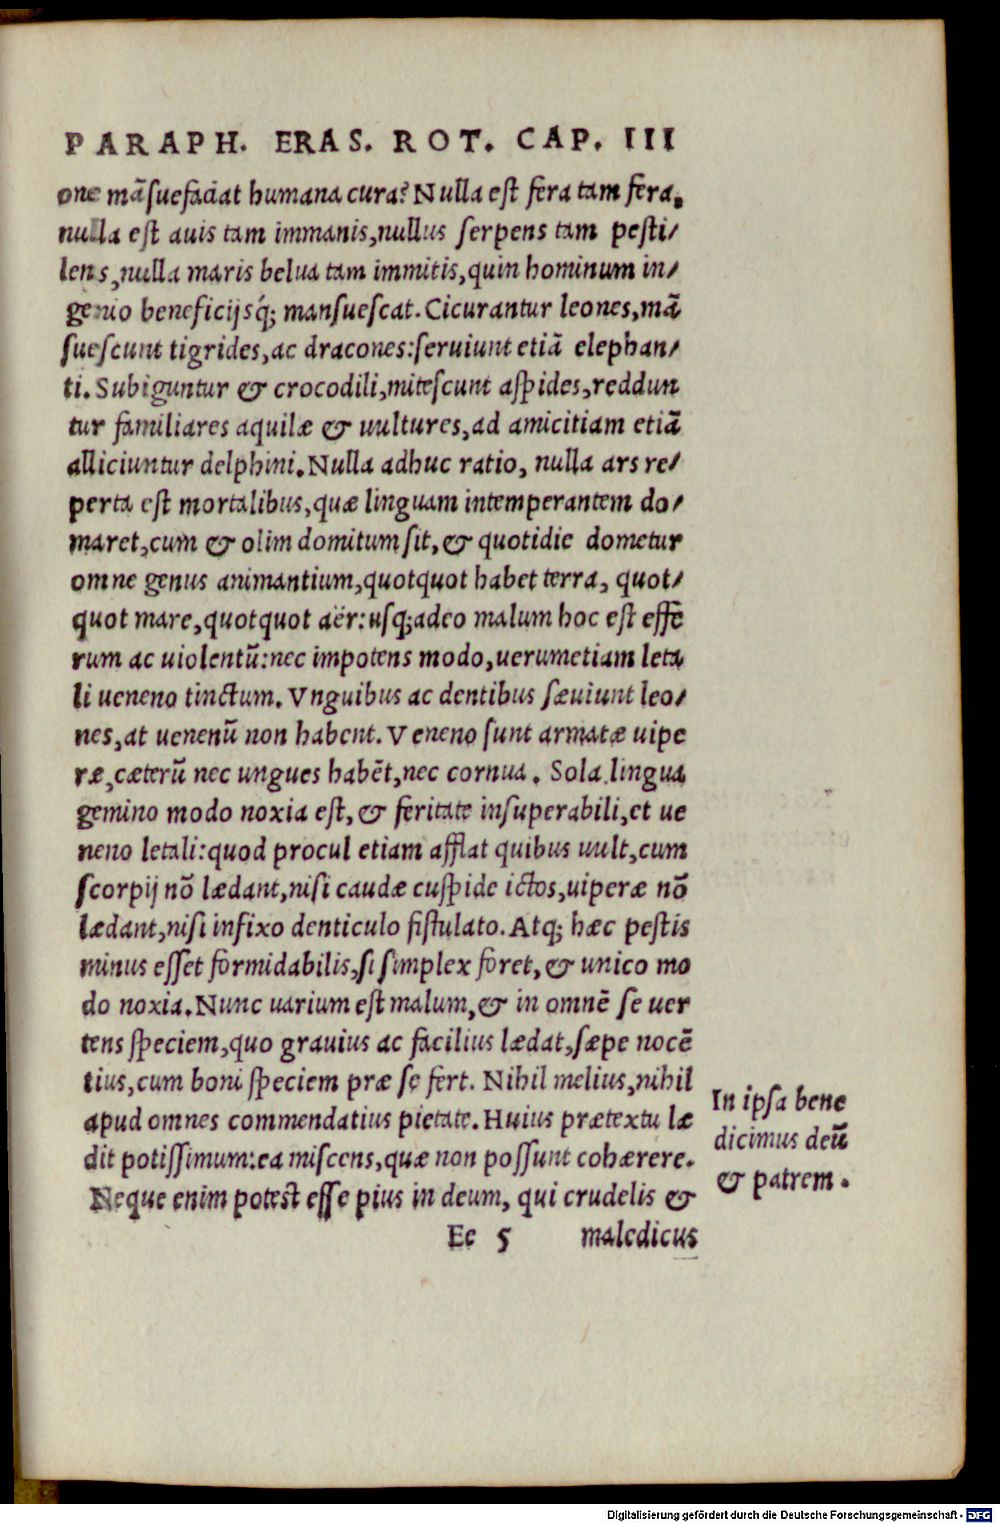 PARAPH. ERAS. ROT. CAP. III
one mãsuefaciat humana cura? Nulla est fera tam fera,
nulla est auis tam immanis, nullus serpens tam pesti/
lens, nulla maris belua tam immitis, quin hominum in/
genio beneficijsq́; mansuescat. Cicurantur leones, mã
suescunt tigrides, ac dracones: seruiunt etiã elephan/
ti. Subiguntur & crocodili, mitescunt aspides, reddun
tur familiares aquilæ & uultures, ad amicitiam etiã
alliciuntur delphini. Nulla adhuc ratio, nulla ars re/
perta est mortalibus, quæ linguam intemperantem do/
maret, cum & olim domitum sit, & quotidie dometur
omne genus animantium, quotquot habet terra, quot/
quot mare, quotquot aër: usq; adeo malum hoc est effe
rum ac uiolentũ: nec impotens modo, uerumetiam leta
li ueneno tinctum. Vnguibus ac dentibus sæuiunt leo/
nes, at uenenũ non habent. Veneno sunt armatæ uipe
ræ, cæterũ nec ungues habẽt, nec cornua. Sola lingua
gemino modo noxia est, & feritate insuperabili, et ue
neno letali: quod procul etiam afflat quibus uult, cum
scorpij nõ lædant, nisi caudæ cuspide ictos, uiperæ nõ
lædant, nisi infixo denticulo fistulato. Atq; hæc pestis
minus esset formidabilis, si simplex foret, & unico mo
do noxia. Nunc uarium est malum, & in omnẽ se uer
tens speciem, quo grauius ac facilius lædat, sæpe nocẽ
tius, cum boni speciem præ se fert. Nihil melius, nihil
apud omnes commendatius pietate. Huius prætextu læ
dit potissimum: ea miscens, quæ non possunt cohærere.
Neque enim potest esse pius in deum, qui crudelis &
Ee 5 maledicus
In ipsa bene
dicimus deũ
& patrem.
Digitalisierung gefördert durch die Deutsche Forschungsgemeinschaft - DFG